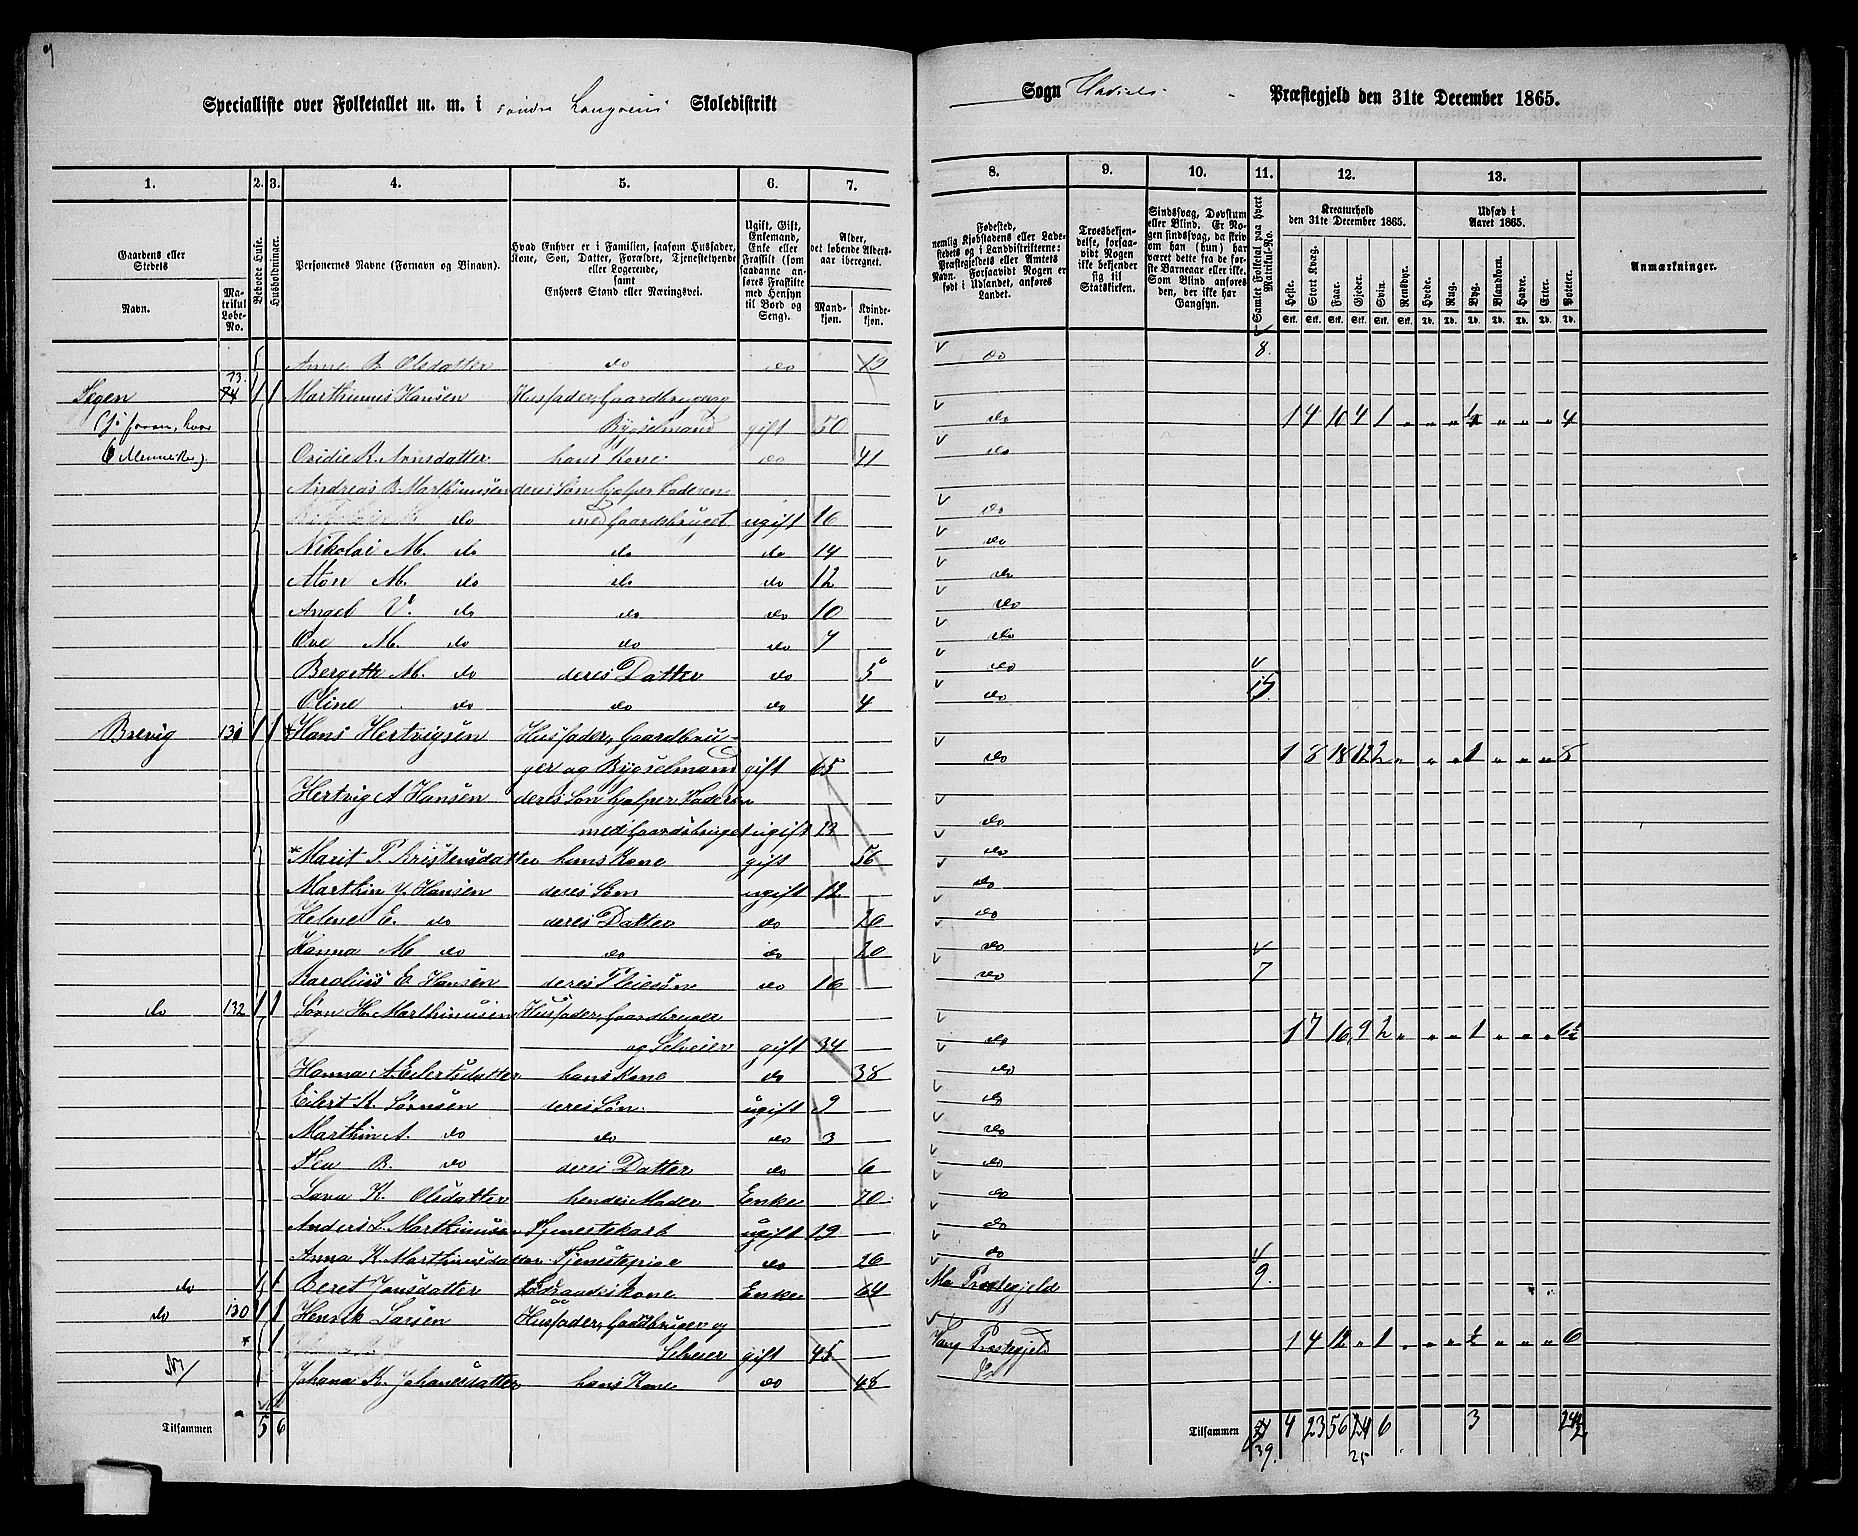 Specialliste over Folketallet m. m. i søndre Langøens Skoledistrikt
Sogn Hadsels Præstegjeld den 31te December 1865.
1. 2. 3. 4. 5. 6. 7. 8. 9. 10. 11. 12. 13.
Gaardens eller Stedets
Navn.
Matrikul Løbe-No.
Beboede Huse.
Husholdninger.
Personernes Navne (Fornavn og Binavn).
Hvad Enhver er i Familien, saasom Husfader, Kone, Søn, Datter, Forældre, Tjenestetyende eller Logerende, samt Enhvers Stand eller Næringsvei.
Ugift, Gift, Enkemand, Enke eller Fraskilt (som saadanne anføres Fraskilte med Hensyn til Bord og Seng).
Alder, det løbende Alders-aar iberegnet.
Mand-kjøn.
Kvinde-kjøn.
Fødested, nemlig Kjøbstadens eller Ladestedets og i Landdistrikterne: Præstegjeldets eller Amtets Navn. Forsaavidt Nogen er født i Udlandet, anføres Landet.
Troesbekjendelse, forsaavidt Nogen ikke bekjender sig til Statskirken.
Sindssvag, Døvstum eller Blind. Er Nogen sindssvag, da skriv om han (hun) har været dette fra de første Barneaar eller ikke. Som Blind anføres den, der ikke har Gangsyn.
Samlet Folketal paa hvert Matrikul-No.
Kreaturhold den 31te December 1865.
Heste. Stort Kvæg. Faar. Gjeder. Svin. Rensdyr.
Stk. Stk. Stk. Stk. Stk. Stk.
Udsæd i Aaret 1865.
Hvede. Rug. Byg. Blandkorn. Havre. Erter. Poteter.
Td. Td. Td. Td. Td. Td. Td.
Anmærkninger.
Anne B. Olsdatter do do 19 do 8.
73.
74 1 1 Marthinus Hansen Husfader, Gaardbruger og
Bygselmand gift 50 do 1 4 10 4 1 4
6 Mennesker). Ovidie R. Arnsdatter hans Kone do 41 do
Andreas B. Marthinusen deres Søn hjælper Faderen
do med Gaardsbruget ugift 16 do
Nikolai M. do do do 14 do
Aton M. do do do 12 do
Angel V. do do do 10 do
Ove M. do do do 7 do
Bergette M. do deres Datter do 5 do
Oline do do do 4 do 15
Brevig 131 1 1 Hans Hertvigsen Husfader, Gaardbru-
ger og Bygselmand gift 65 do 1 8 18 12 2 1 8
Hertvig A Hansen deres Søn hjælper Faderen
med Gaardsbruget ugift 23 do
Marit P. Kristensdatter hans Kone gift 56 do
Marthin J. Hansen deres Søn ugift 12 do
Helene E. do deres Datter do 26 do
Hanna M do do do 20 do
Karolius E Hansen deres Pleiesøn do 16 do 7
do 132 1 1 Sørn H. Marthinusen Husfader, Gaardbruger
og Selveier gift 34 do 1 7 16 9 2 1 6½
Hanna A Eilertsdatter hans Kone do 38 do
Eilert K. Sørnsen deres Søn ugift 9 do
Marthin A. do do do 3 do
B. do deres Datter do 6 do
K. Olsdatter hendes Moder Enke 70 do
Anders L. Marthinusen Tjenestekarl ugift 19 do
Anna K. Marthinusdatter Tjenestepige do 26 do 9.
do 1 Beret Jonsdatter Enke 64 Præstegjeld
do 130 1 1 Henrik Larsen Husfader, Gaardbruger og
Selveier gift 45 Præstegjeld 1 4 12 1 ½ 6
Johana K. Johanesdatter hans Kone do 48 do
Tilsammen 5 6
Tilsammen 39. 4 23 56 24 6 3 24½
25